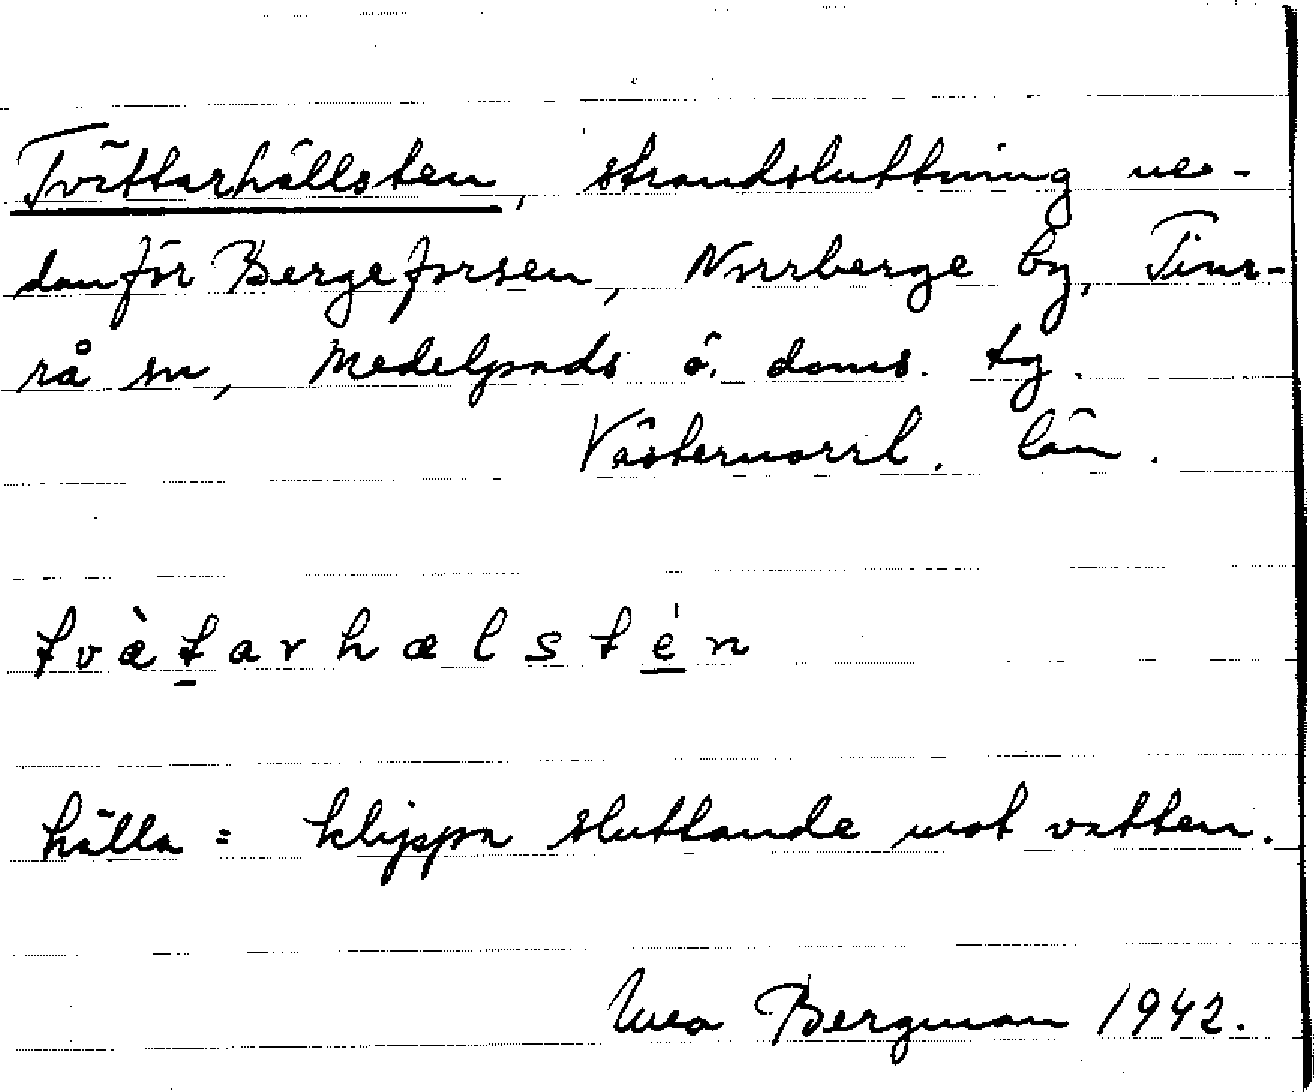 Tvättarhällsten, strandsluttning ne-
danför Bergeforsen, Norrberge by, Tim-
rå sn, Medelpads ö. doms. tg.
Västernorrl. län.
tvæ̀t̲arhælsté̲n
hälla = klippa sluttande mot vatten.
Bergman 1942.